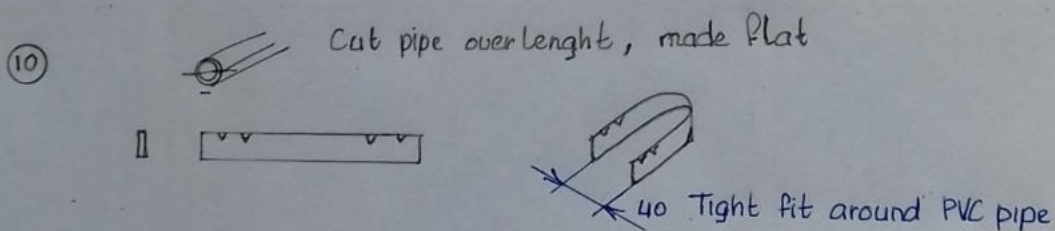 10
Cut pipe over lenght, made flat
40 Tight fit around PVC pipe